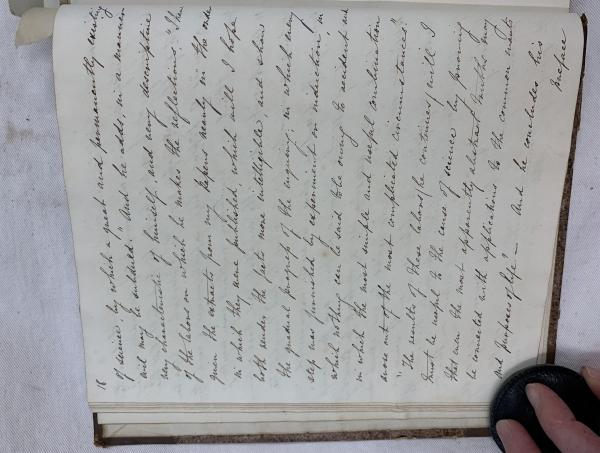 18
of science, by which a great and permanently existing
evil may be subdued." And he adds, in a manner
very characteristic of himself and very descriptive
of the labors on which he makes the reflections. "I have
given the extracts from my papers nearly in the order
in which they were published which will I hope
both render the facts more intelligible, and shew
the gradual progress of the inquiry; in which every
step was furnished by experiment or induction; in
which nothing can be said to be owing to accident and
in which the most simple and useful combination
arose out of the most complicated circumstances."
"The results of these labors (he continues) will I
trust be useful to the cause of science by proving
that even the most apparently abstract truths may
be connected with applications to the common wants
and purposes of life" — And he concludes his
Preface